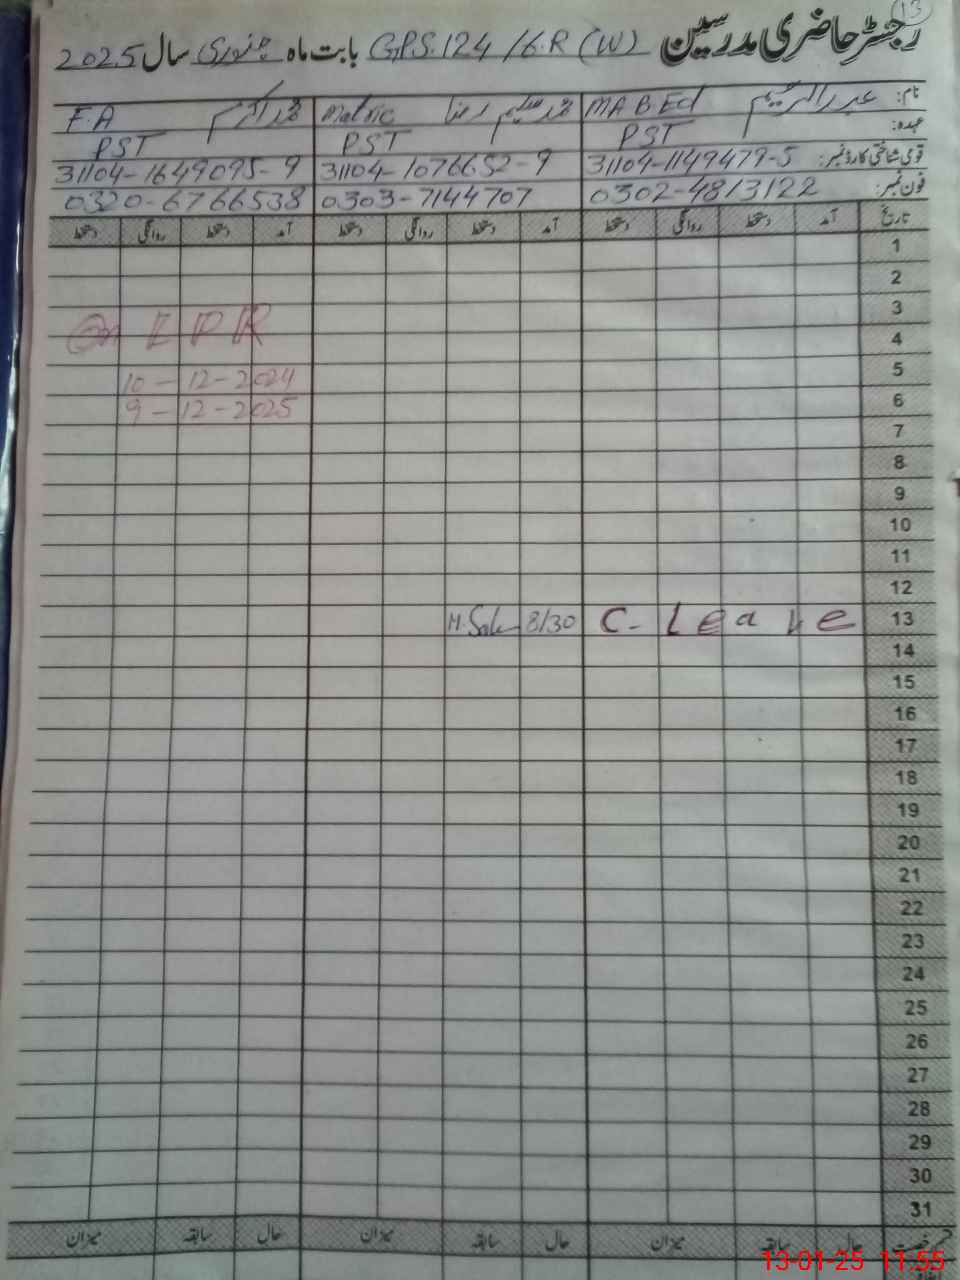 13
رجسٹر حاضری مدرسین G.P.S. 124 /6.R (W) بابت ماہ جنوری سال 2025
نام: عبدالرحیم M A B.Ed محمد سلیم رضا Matric محمد اکرم F.A
عہدہ: PST PST PST
قومی شناختی کارڈ نمبر: 31104-1149479-5 31104-1076652-9 31104-1649095-9
فون نمبر: 0302-4813122 0303-7144707 0320-6766538
تاریخ آمد دستخط روانگی دستخط آمد دستخط روانگی دستخط آمد دستخط روانگی دستخط
1
2
3
On LPR
4
5 10-12-2024
6 9-12-2025
7
8
9
10
11
12
13 C-Leave 8/30
14
15
16
17
18
19
20
21
22
23
24
25
26
27
28
29
30
31
رخصت حال سابقہ میزان حال سابقہ میزان حال سابقہ میزان
13-01-25 11:55